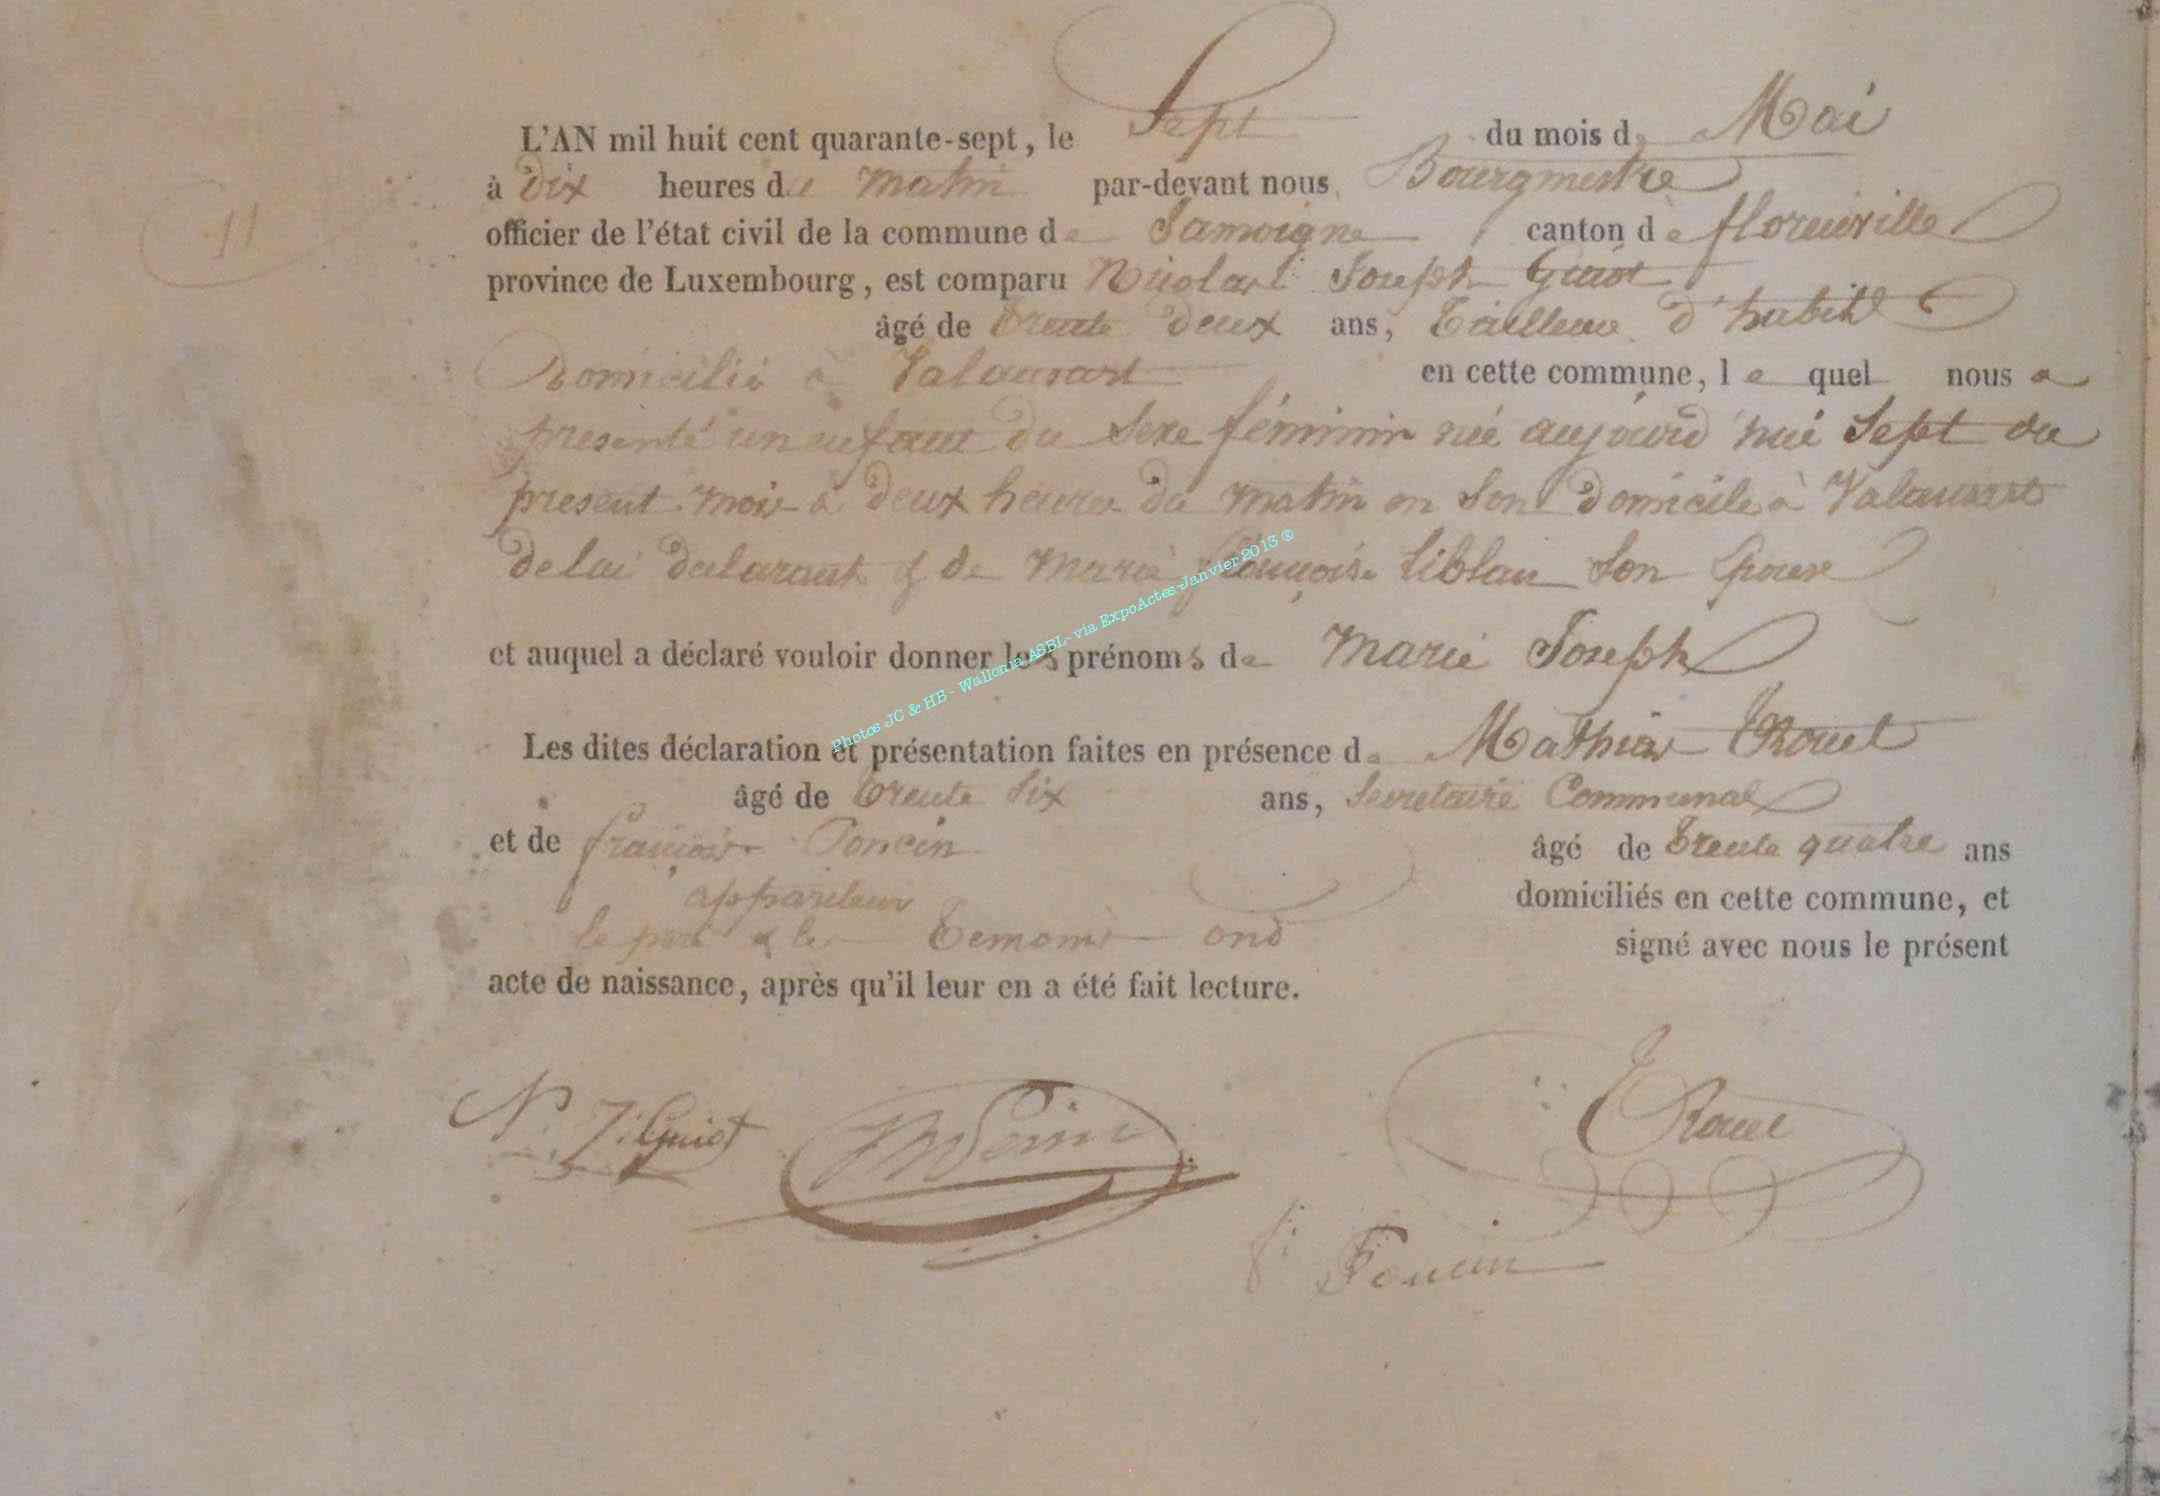 L'AN mil huit cent quarante-sept, le Sept du mois de Mai
11
à Dix heures du matin par-devant nous, Bourgmestre
officier de l'état civil de la commune de Jamoigne canton de florenville
province de Luxembourg, est comparu Nicolas Joseph Guiot
âgé de trente deux ans, tailleur d'habits
Domicilié à Valansart en cette commune, lequel nous a
présenté un enfant du Sexe féminin né aujourd'hui Sept du
present mois à deux heures du matin en Son domicile à Valansart
de lui declarant & de Marie françoise Liblan Son Epouse
et auquel a déclaré vouloir donner les prénoms de Marie Joseph
Les dites déclaration et présentation faites en présence de Mathias Trouet
âgé de trente Six ans, Secretaire Communal
et de françois Poncin âgé de trente quatre ans
appariteur domiciliés en cette commune, et
le père & les temoins ont signé avec nous le présent
acte de naissance, après qu'il leur en a été fait lecture.
N. J. Guiot
f. Poncin
Photos JC & HB - Wallonia ASBL - via ExpoActes-Janvier 2013 ®